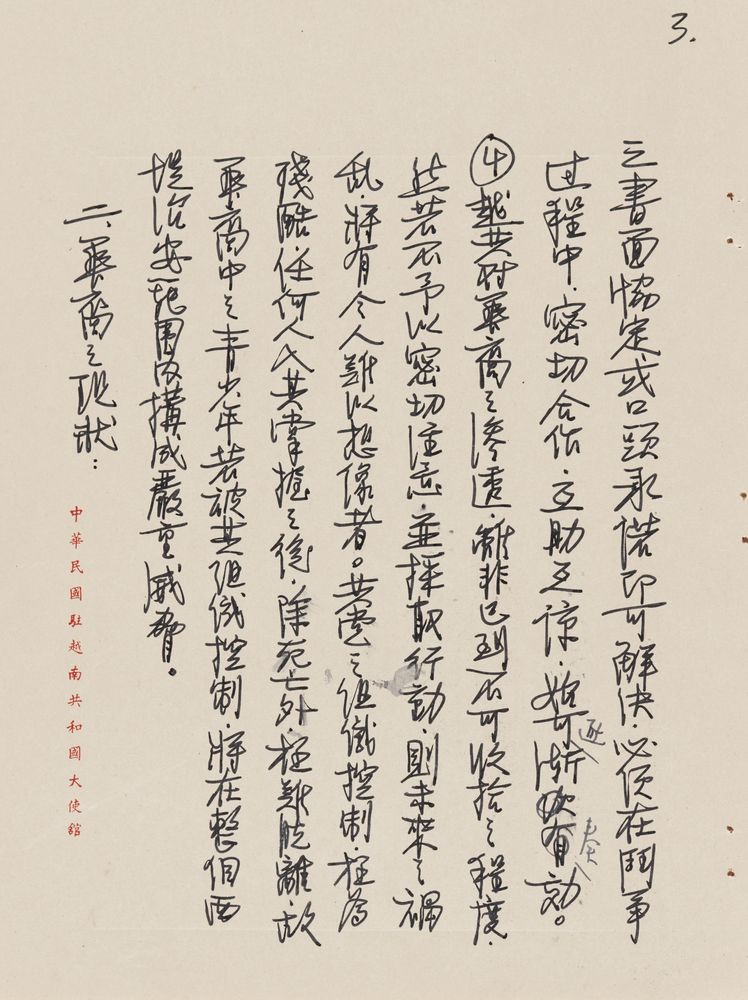 3.
之書面協定或口頭承諾即可解決,必須在鬥爭
过程中,密切合作,互助互諒,始可逐漸奏效。
④越共对華裔之滲透,雖非已到不可收拾之程度,
然若不予以密切注意,並採取行動,則未來之禍
乱,將有令人難以想像者。共党之组織控制,極為
殘酷,任何人入其掌握之後,除死亡外,極難脫離,故
華裔中之青少年若被其组織控制,將在整個西
堤治安範围內構成嚴重威脅。
二、華裔之現狀:
中華民國駐越南共和國大使館